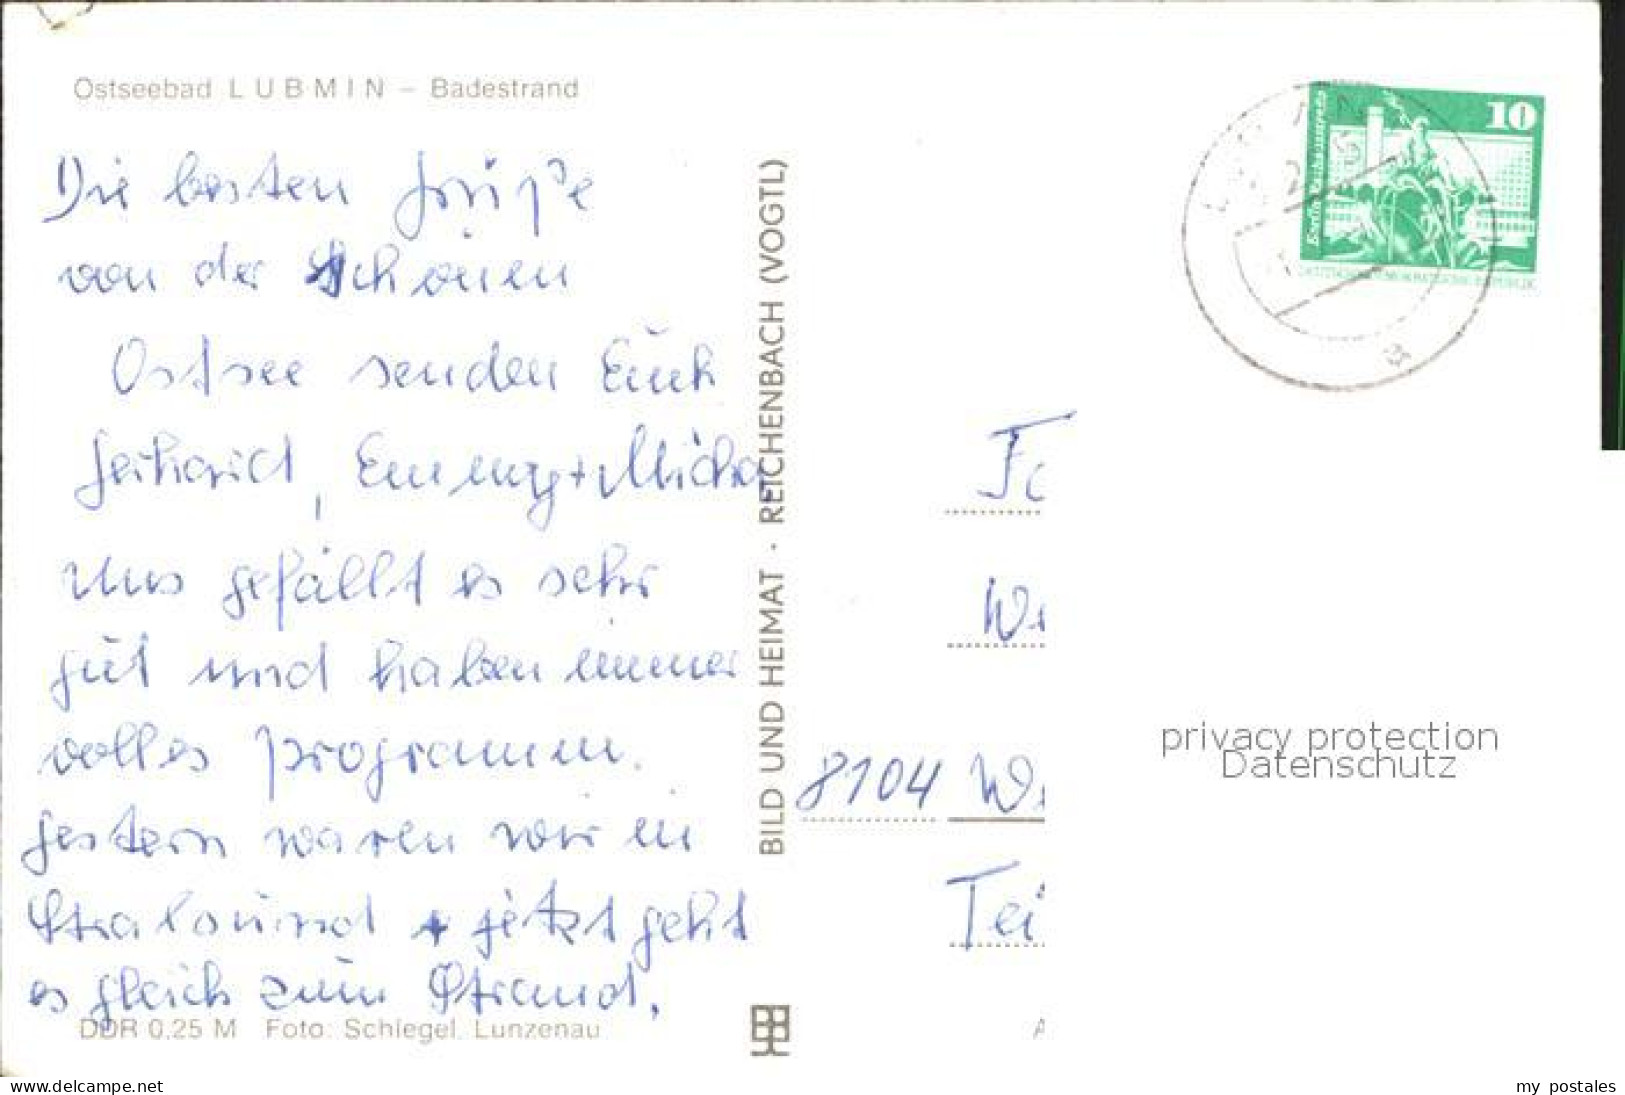 Ostseebad LUBMIN – Badestrand
Die besten Grüße
von der Schönen
Ostsee senden Euch
Gerhard, Emmy + Micha,
Uns gefällt es sehr
gut und haben immer
volles Programm.
Gestern waren wir in
Stralsund + jetzt geht
es gleich zum Strand.
DDR 0,25 M Foto: Schlegel, Lunzenau
BILD UND HEIMAT · REICHENBACH (VOGTL)
10
DEUTSCHE DEMOKRATISCHE REPUBLIK
Fa
We
8104 We
Tei
A
privacy protection
Datenschutz
www.delcampe.net
my postales